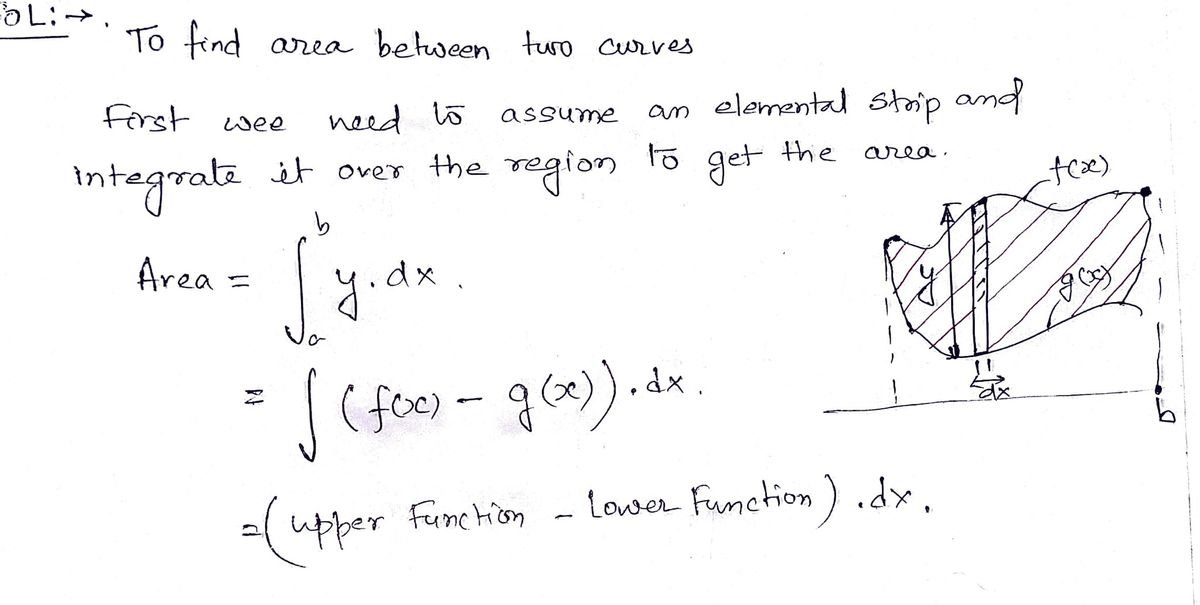 OL:→.
To find area between two curves
First wee need to assume an elemental strip and
integrate it over the region to get the area.
f(x)
Area = ∫ₐᵇ y.dx.
y
g(x)
dx
= ∫ (f(x) - g(x)).dx.
b
=(upper Function - Lower Function).dx.